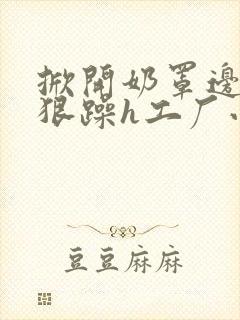 掀開奶罩邊
狠躁h工厂
豆豆麻麻